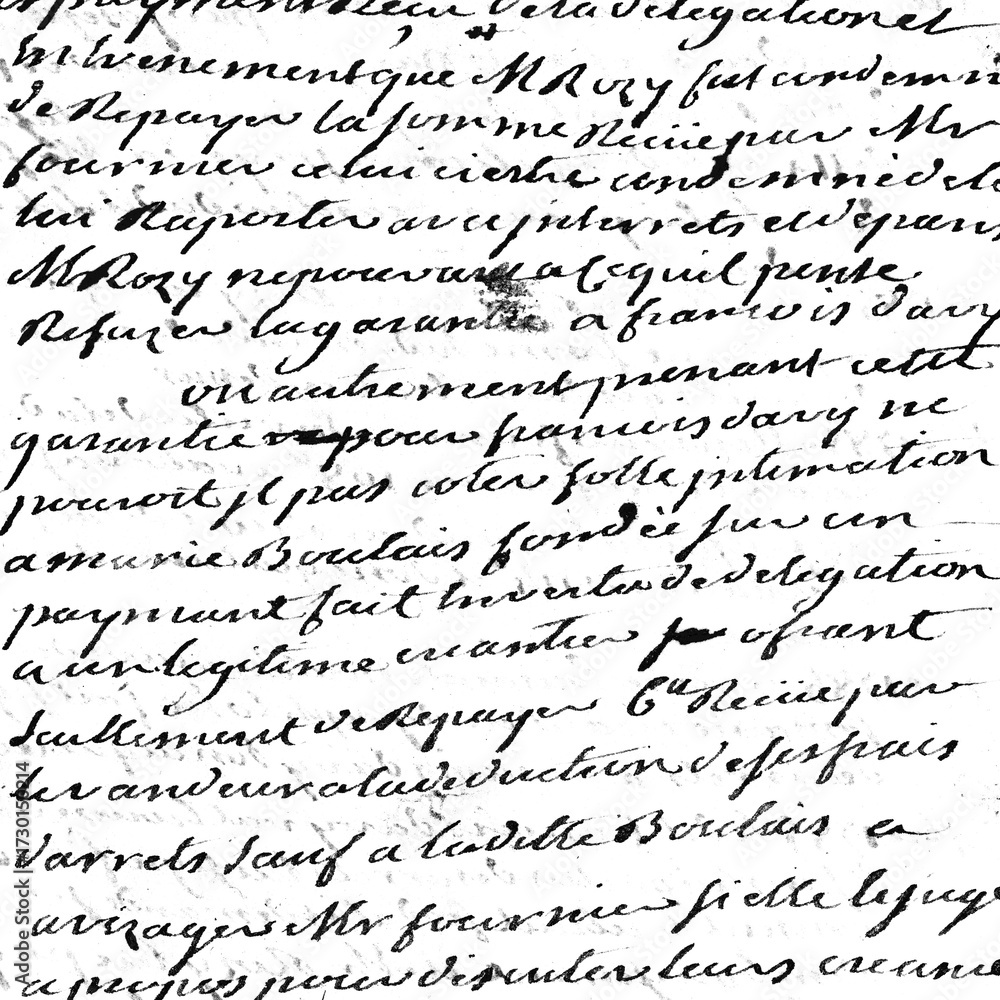 payment de la delegation et
En Evenement que M Rozy fut condemn
de Repayer la somme Reciie par Mr
fournier celui ci estre condemné de le
lui Raporter avec jnterrets et depans
M Rozy ne pouvant a ce quil pense
Refuzer la garantie a francois davy
ou autrement prenant cette
garantie pour francois davy ne
pouvoit jl pas coter folle jntimation
a marie Boulais fondée sur un
payment fait En vertu de delegation
a un legitime creantier ofrant
Seullement de Repayer Reciie par
le vandeur a la deduction de ses frais
d'arrets Sauf a la ditte Boulais a
avizager Mr fournier si elle le juge
a propos pour discuter leurs creance
Adobe Stock | #1730159214